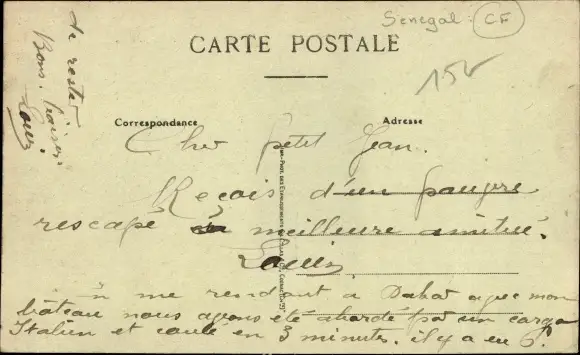 Senegal CF
CARTE POSTALE
15
Correspondance
Adresse
Cher petit Jean.
Reçois d'un pauvre
rescapé sa meilleure amitié.
Louis
En me rendant à Dakar avec mon
bateau nous avons été abordé par un cargo
Italien et coulé en 3 minutes. il y a eu 6
de rester
Bons baisers
Louis